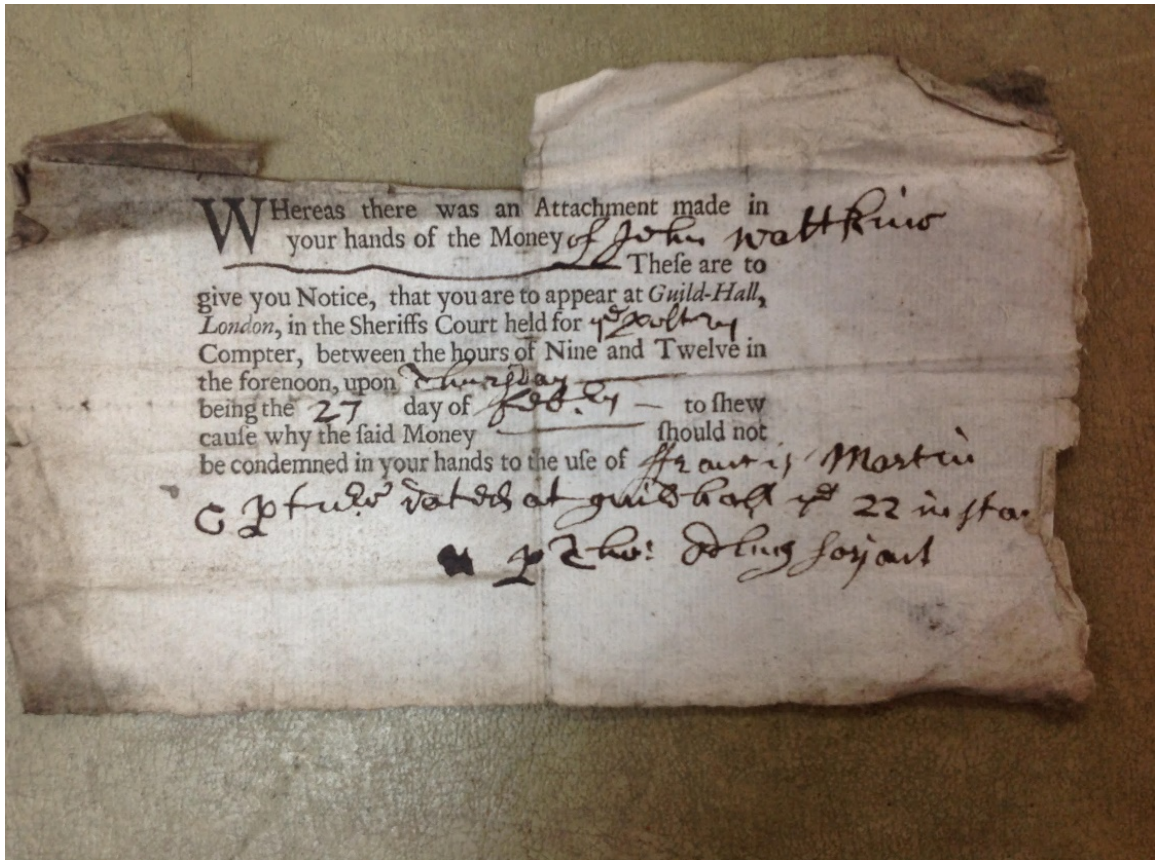 WHereas there was an Attachment made in
your hands of the Money of John Wattkins
Theſe are to
give you Notice, that you are to appear at Guild-Hall,
London, in the Sheriffs Court held for ye poltry
Compter, between the hours of Nine and Twelve in
the forenoon, upon Thursday
being the 27 day of feb:ry to ſhew
cauſe why the ſaid Money ſhould not
be condemned in your hands to the uſe of ffrancis Martin
dated at guildhall ye 22 insta
p Tho: serjant